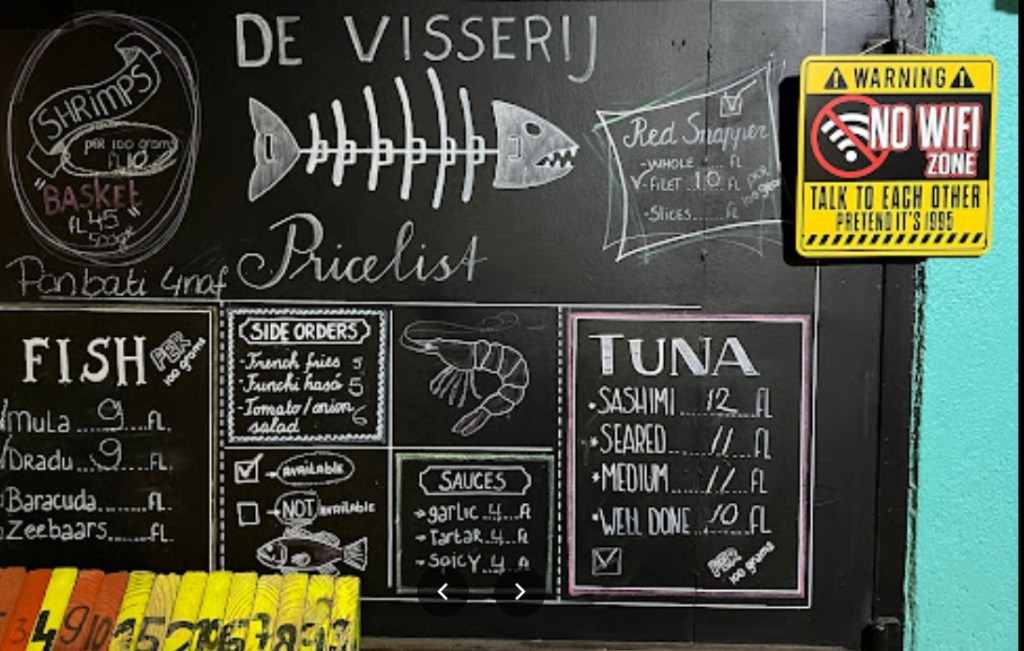 DE VISSERIJ
SHRIMPS
PER 100 grams
FL 10
"BASKET
FL 45"
500gr
Pan bati 4naf
Pricelist
Red Snapper
-WHOLE .... FL
✓-FILET 10 FL
-SLICES....... FL
PER
100 gram
WARNING
NO WIFI
ZONE
TALK TO EACH OTHER
PRETEND IT'S 1995
FISH
PER
100 grams
Mula ... 9 ... FL.
Dradu ... 9 ... FL.
Baracuda......FL.
Zeebaars.......FL.
SIDE ORDERS
-French fries 5
-Funchi hasa 5
-Tomato/onion 6
salad
AVAILABLE
NOT AVAILABLE
SAUCES
garlic ..4.. fl
Tartar ..4.. fl
SpicY ..4.. fl
TUNA
SASHIMI ... 12 ... FL
SEARED ... 11 ... FL
MEDIUM ... 11 ... FL
WELL DONE ... 10 ... FL
PER
100 grams
3 4 9 10